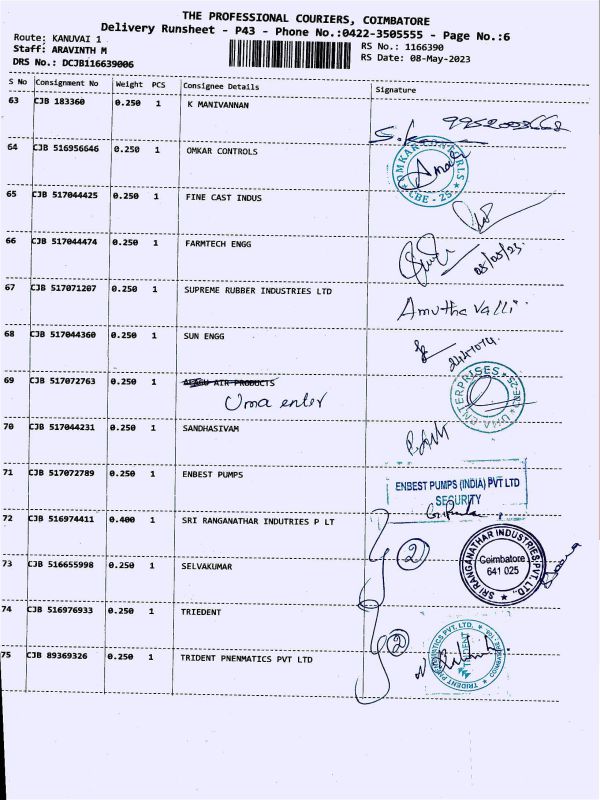 THE PROFESSIONAL COURIERS, COIMBATORE
Delivery Runsheet - P43 - Phone No.:0422-3505555 - Page No.:6
Route: KANUVAI 1
RS No.: 1166390
Staff: ARAVINTH M
RS Date: 08-May-2023
DRS No.: DCJB116639006
S No Consignment No Weight PCS Consignee Details Signature
63 CJB 183360 0.250 1 K MANIVANNAN
64 CJB 516956646 0.250 1 OMKAR CONTROLS
OMKAR CONTROLS
CBE - 25
65 CJB 517044425 0.250 1 FINE CAST INDUS
66 CJB 517044474 0.250 1 FARMTECH ENGG
08/05/23
67 CJB 517071207 0.250 1 SUPREME RUBBER INDUSTRIES LTD
Amutha Valli
68 CJB 517044360 0.250 1 SUN ENGG
69 CJB 517072763 0.250 1 AIR PRODUCTS
Uma enter
UMA ENTERPRISES
CBE-25
70 CJB 517044231 0.250 1 SANDHASIVAM
71 CJB 517072789 0.250 1 ENBEST PUMPS
ENBEST PUMPS (INDIA) PVT LTD
SECURITY
72 CJB 516974411 0.400 1 SRI RANGANATHAR INDUTRIES P LT
2
SRI RANGANATHAR INDUSTRIES PVT. LTD.,
Coimbatore
641 025
73 CJB 516655998 0.250 1 SELVAKUMAR
74 CJB 516976933 0.250 1 TRIEDENT
2
75 CJB 89369326 0.250 1 TRIDENT PNENMATICS PVT LTD
TRIDENT PNEUMATICS PVT. LTD.
TRIDENT